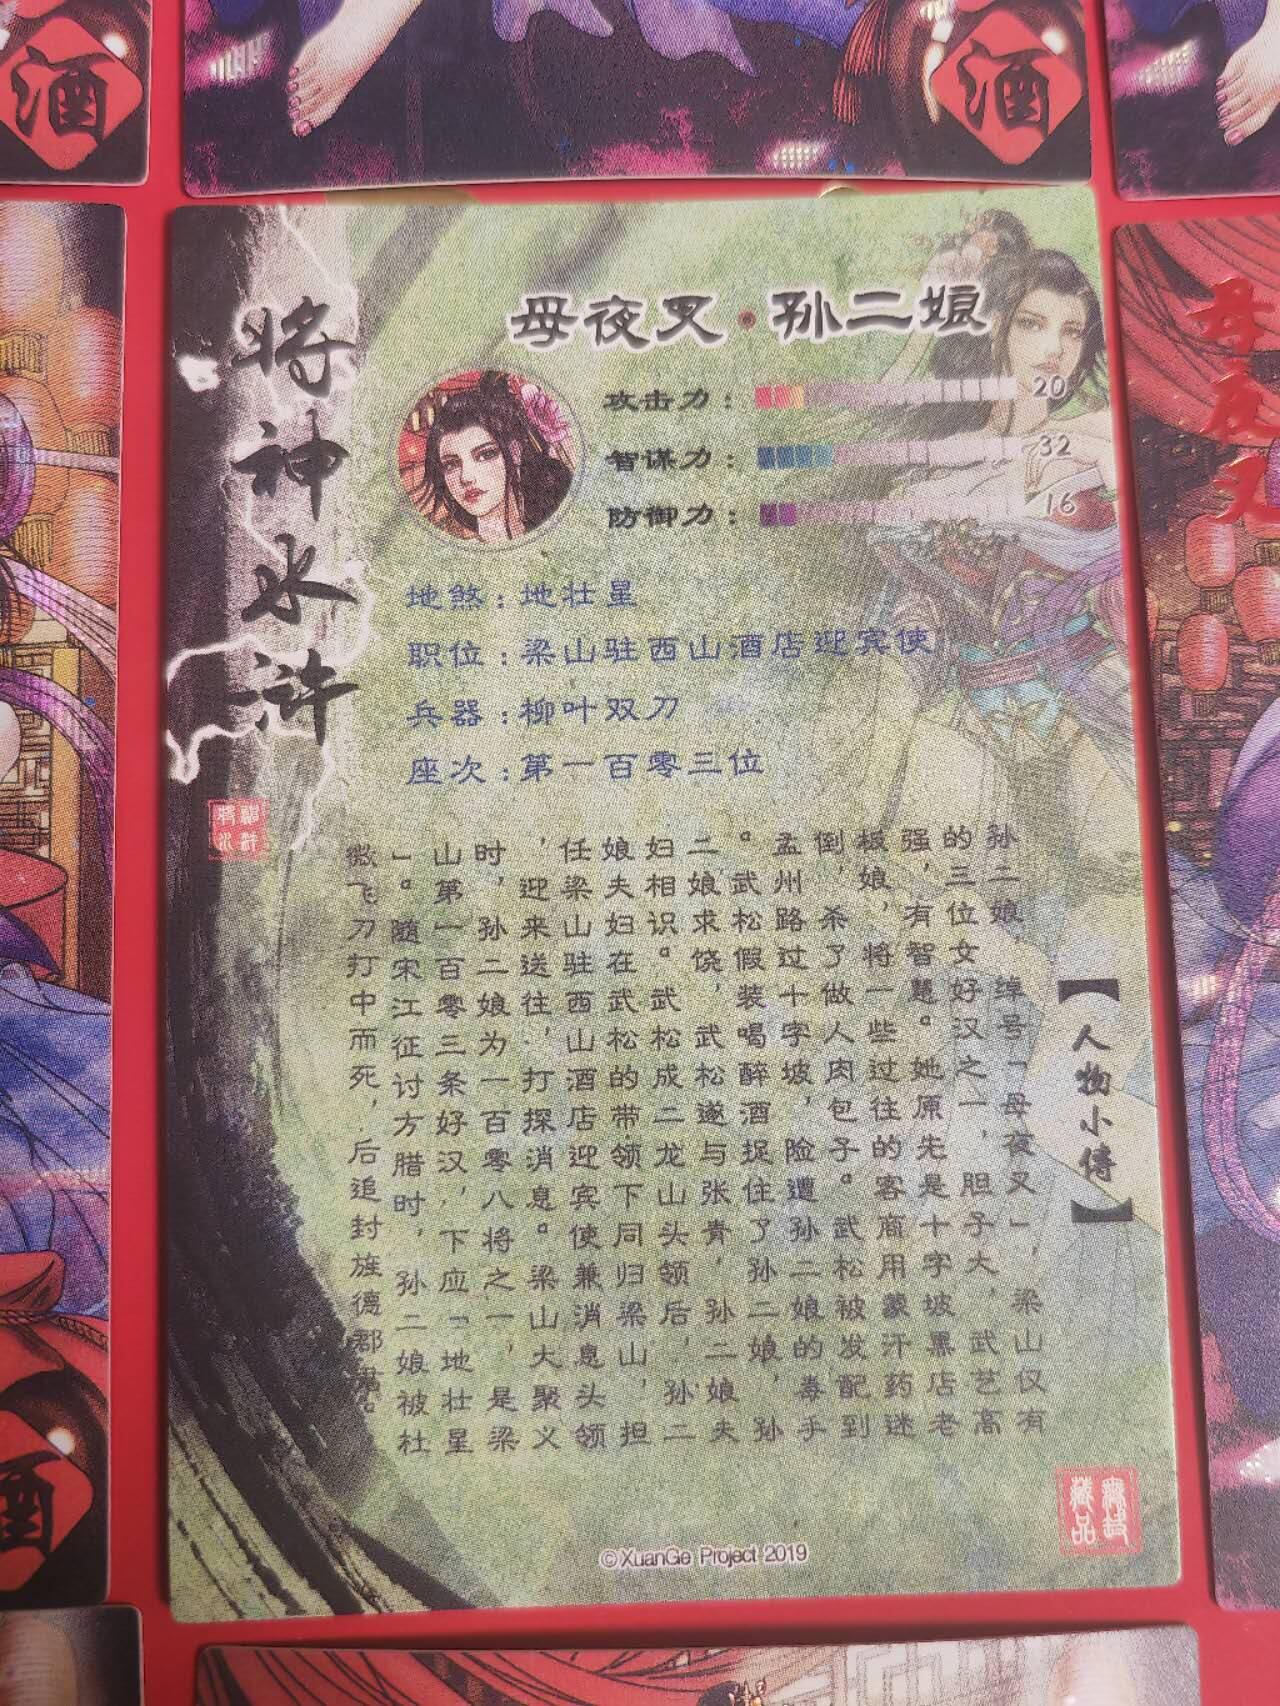 酒
酒
将神水浒
母夜叉·孙二娘
攻击力：20
智谋力：32
防御力：16
地煞：地壮星
职位：梁山驻西山酒店迎宾使
兵器：柳叶双刀
座次：第一百零三位
【人物小传】
孙二娘，绰号「母夜叉」，梁山仅有
的三位女好汉之一，胆子大，武艺高
强，有智慧。她原先是十字坡黑店老
板娘，将一些过往的客商用蒙汗药迷
倒，杀了做人肉包子。武松被发配到
孟州路过十字坡，险遭孙二娘的毒手
。武松假装喝醉酒捉住了孙二娘，孙
二娘求饶，武松遂与张青，孙二娘夫
妇相识。武松成二龙山头领后，孙二
娘夫妇在武松的带领下同归梁山，担
任梁山驻西山酒店迎宾使兼消息头领
，迎来送往，打探消息。梁山大聚义
时，孙二娘为一百零八将之一，是梁
山第一百零三条好汉，下应「地壮星
」。随宋江征讨方腊时，孙二娘被杜
微飞刀打中而死，后追封旌德郡君。
©XuanGe Project 2019
母夜叉
酒